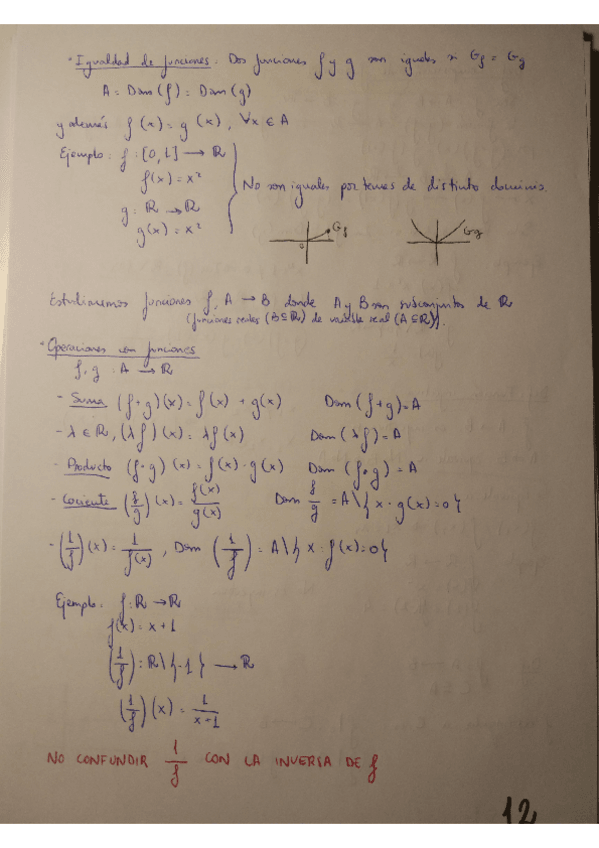 · Igualdad de funciones. Dos funciones f y g son iguales si Gf = Gg
A = Dom (f) = Dom (g)
y además f (x) = g (x), ∀x ∈ A
Ejemplo: f : [0, 1] → R
f(x) = x²
g : R → R
g(x) = x²
No son iguales por temas de distinto dominio.
0 Gf Gg
Estudiaremos funciones f: A → B donde A y B son subconjuntos de R
(funciones reales (B⊆R) de variable real (A⊆R)).
· Operaciones con funciones
f, g : A → R
- Suma (f+g)(x) = f(x) + g(x) Dom (f+g) = A
- λ ∈ R, (λf)(x) = λf(x) Dom (λf) = A
- Producto (f·g)(x) = f(x)·g(x) Dom (f·g) = A
- Cociente (f/g)(x) = f(x)/g(x) Dom f/g = A\{x : g(x) = 0}
- (1/f)(x) = 1/f(x), Dom (1/f) = A\{x : f(x) = 0}
Ejemplo: f: R → R
f(x) = x + 1
(1/f): R\{-1} → R
(1/f)(x) = 1/x-1
NO CONFUNDIR 1/f CON LA INVERSA DE f
12